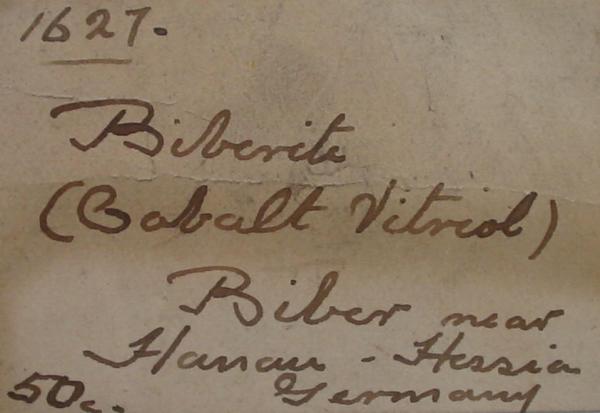 1627.
Biberite
(Cobalt Vitriol)
Biber near
Hanau - Hessia
50c. Germany